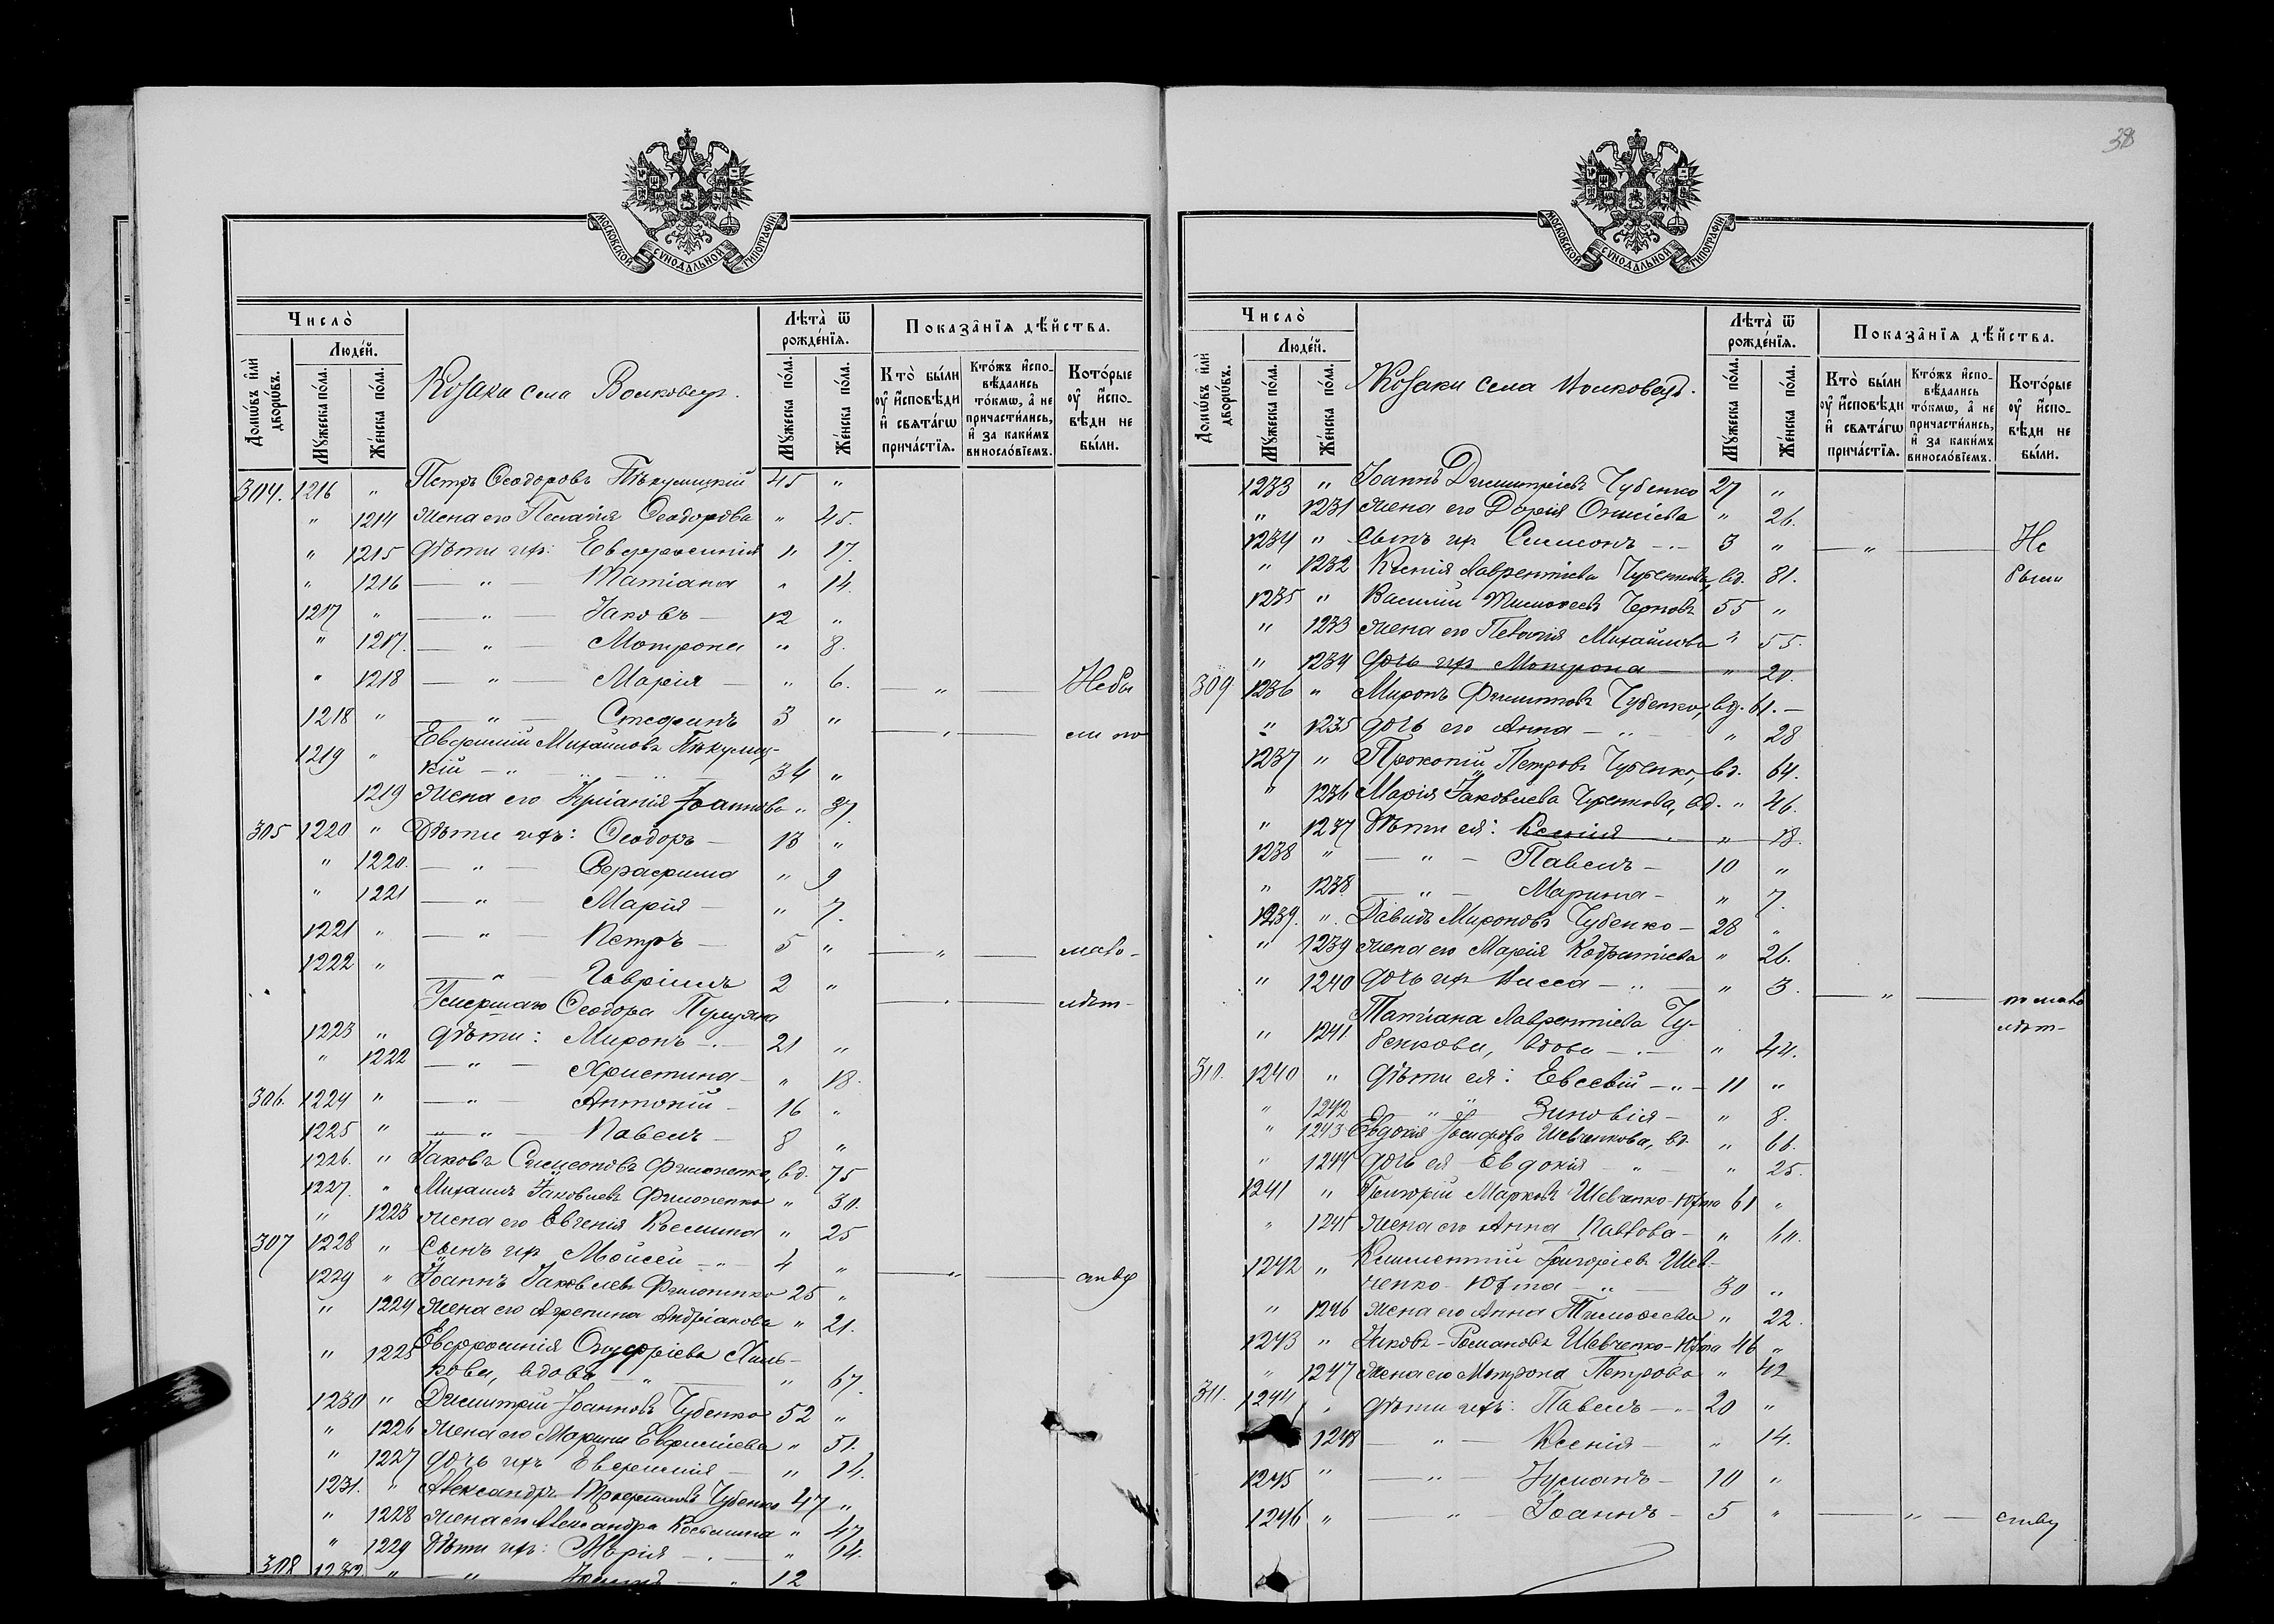 38
МОСКОВСКОЙ СѴНОДАЛЬНОЙ ТИПОГРАФІИ
Число̀
Людéй.
Домѡ́въ и҆лѝ дворѡ́въ.
Мꙋ́жеска по́ла.
Же́нска по́ла.
Козаки села Волковецъ.
Лѣ́та ѿ рожде́нїѧ.
Мꙋ́жеска по́ла.
Же́нска по́ла.
Показа̑нїѧ дѣ́йства.
Кто̀ бы́ли ᲂу҆ и҆сповѣ́ди и҆ свѧта́гѡ прича́стїѧ.
Кто́жъ и҆спо-вѣ́дались то́кмѡ, а҆ не причасти́лись, и҆ за каки́мъ винослѡ́вїемъ.
Кото́рые ᲂу҆ и҆спо-вѣ́ди не бы́ли.
304. 1216 " Петръ Ѳеодоровъ 45 "
" 1214 Жена его Пелагія Ѳеодорова " 45.
" 1215 Дѣти ихъ: Евфросинія " 17.
" 1216 — " — Татіана " 14.
1217 " — " — Іаковъ — 12 "
" 1217. — " — Мотрона " 8.
" 1218 — " — Марія — " 6. — " — Небы
1218 " — " — Стефанъ 3 " — " — ли по
1219 " Евфимій Михайловъ
кій — " — 34 "
1219 Жена его Іуліанія Іоаннова " 37.
305 1220 " Дѣти ихъ: Ѳеодоръ — 13 "
" 1220. — " — Серафима " 9
" 1221 — " — Марія — " 7.
1221 " — " — Петръ — 5 " — " — мало-
1222 " — " — Гавріилъ 2 " — " — лѣт-
Умершаго Ѳеодора
1223 " дѣти: Миронъ — 21 "
" 1222 — " — Христина — " 18.
306. 1224 " — " — Антоній — 16 "
1225 " — " — Павелъ — 8 "
1226. " Іаковъ Симеоновъ Филоненко, вд. 75
1227. " Михаилъ Іаковлевъ Филоненко " 30.
" 1223 Жена его Евгенія Космина " 25
307 1228 " Сынъ ихъ Моисей — " — 4 " — " — ству
1229 " Іоаннъ Іаковлевъ Филоненко 25 "
" 1224 Жена его Агрепина Андріанова " 21.
" 1225 Евфросинія Онуфріева Хиль-
кова, вдова — " — " 67.
1230 " Димитрій Іоанновъ Чубенко 52 "
" 1226 Жена его Марина Евфиміева " 51.
" 1227 Дочь ихъ Евфимія — " 14.
1231. " Александръ Трофимовъ Чубенко 47 "
" 1228 Жена его Александра Косьмина " 47.
" 1229 Дѣти ихъ: Марія — " 14.
308 1232 " — " — 12
МОСКОВСКОЙ СѴНОДАЛЬНОЙ ТИПОГРАФІИ
Число̀
Людéй.
Домѡ́въ и҆лѝ дворѡ́въ.
Мꙋ́жеска по́ла.
Же́нска по́ла.
Козаки села Волковецъ.
Лѣ́та ѿ рожде́нїѧ.
Мꙋ́жеска по́ла.
Же́нска по́ла.
Показа̑нїѧ дѣ́йства.
Кто̀ бы́ли ᲂу҆ и҆сповѣ́ди и҆ свѧта́гѡ прича́стїѧ.
Кто́жъ и҆спо-вѣ́дались то́кмѡ, а҆ не причасти́лись, и҆ за каки́мъ винослѡ́вїемъ.
Кото́рые ᲂу҆ и҆спо-вѣ́ди не бы́ли.
1233 " Іоаннъ Димитріевъ Чубенко 27 "
" 1231 Жена его Дарія " 26.
1234 " Сынъ их Симеонъ — 3 " — " — Не
" 1232 Ксенія Лаврентіева Чубенкова, вд. 81. были
1235 " Василій Тимоѳеевъ 55 "
" 1233 Жена его Пелагія Михайлова " 55.
" 1234 Дочь ихъ Мотрона " 20.
309 1236 " Миронъ Филипповъ Чубенко, вд. 61. —
" 1235 дочь его Анна — " — " 28
1237 " Прокопій Петровъ Чубенко, вд. 64.
" 1236 Марія Іаковлева Чубенкова, вд. " 46.
" 1237 Дѣти ея: Ксенія " 18.
1238 " — " — Павелъ — 10 "
" 1238 — " — Марина — " 7.
1239. " Давидъ Мироновъ Чубенко — 28 "
" 1239 Жена его Марія Кодратіева " 26.
" 1240 Дочь ихъ — " — " 3. — " — по мало
Татіана Лаврентіева Чу- лѣт-
" 1241. бенкова, вдова — " 44.
310. 1240 " Дѣти ея: Евсевій — " — 11 "
" 1242 — " — Зиновія — " 8.
" 1243 Евдокія Іосифова Шевченкова, вд. " 66.
" 1244 Дочь ея Евдокія — " — " 25.
1241 " Григорій Марковъ Шевченко-Юхта 61 "
" 1245 Жена его Анна Павлова — "
1242 " Климентій Григоріевъ Шев-
ченко-Юхта — " — 30 "
" 1246 Жена его Анна Тимоѳеева " 22.
1243 " Іаковъ Романовъ Шевченко-Юхта 46 "
" 1247 Жена его Мотрона Петрова " 42
311. 1244 " Дѣти ихъ: Павелъ — " 20 "
1248 — " — Ксенія — " 14.
1245 " — " — 10 "
1246 " — " — Іоаннъ — 5 " — " — ству